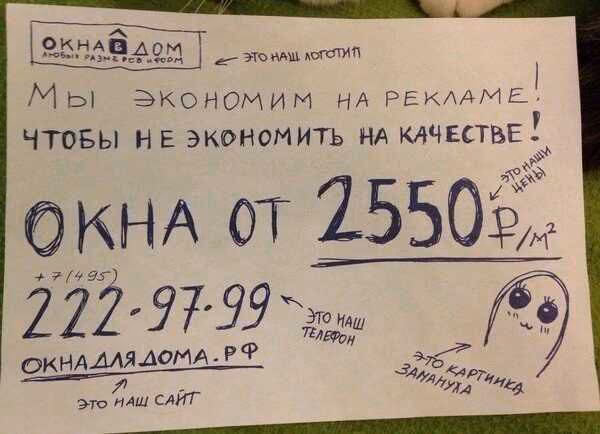 ОКНА В ДОМ
ЛЮБЫХ РАЗМЕРОВ И ФОРМ
ЭТО НАШ ЛОГОТИП
МЫ ЭКОНОМИМ НА РЕКЛАМЕ!
ЧТОБЫ НЕ ЭКОНОМИТЬ НА КАЧЕСТВЕ!
ЭТО НАШИ
ЦЕНЫ
ОКНА ОТ 2550 ₽/М²
+7(495)
222-97-99
ЭТО НАШ
ТЕЛЕФОН
ОКНАДЛЯДОМА.РФ
ЭТО НАШ САЙТ
ЭТО КАРТИНКА
ЗАМАНУХА